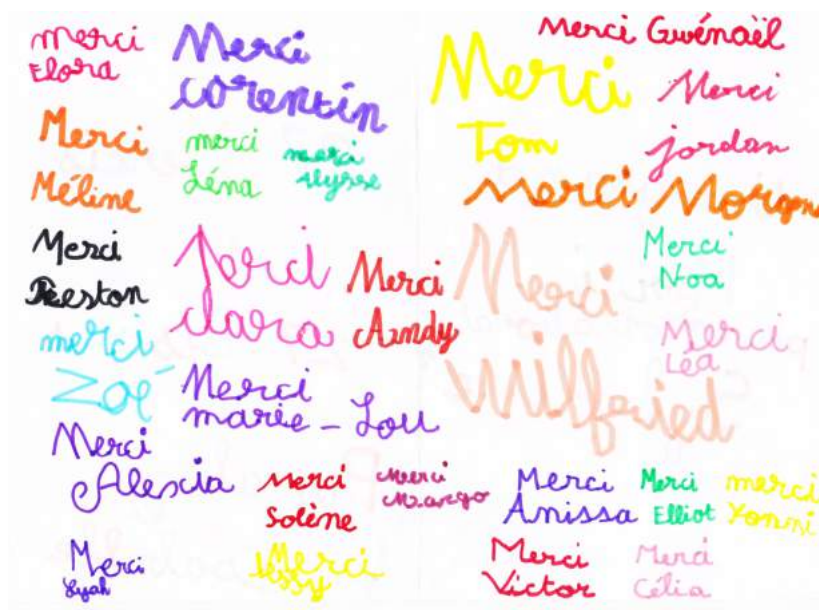 merci
Elora
Merci
corentin
Merci Gwénaël
Merci
Tom
Merci
jordan
Merci
Méline
merci
Léna
merci
Alysse
Merci Morgane
Merci
Merci
clara
Merci
Andy
Merci
Wilfried
Merci
Noa
Merci
Léa
merci
Zoé
Merci
marie-Lou
Merci
Alexia
Merci
Solène
Merci
Margo
Merci
Anissa
Merci
Elliot
merci
Yonni
Merci
Lyah
Merci
Merci
Victor
Merci
Célia